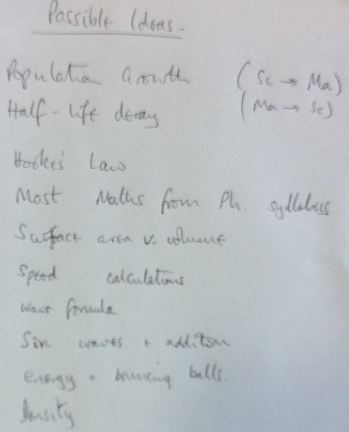 Possible Ideas.
Population Growth (Sc → Ma)
Half-life decay (Ma → Sc)
Hooke's Law
Most Maths from Ph. syllabus
Surface area v. volume
Speed calculations
wave formula
Sin waves + addition
energy + bouncing balls.
Density